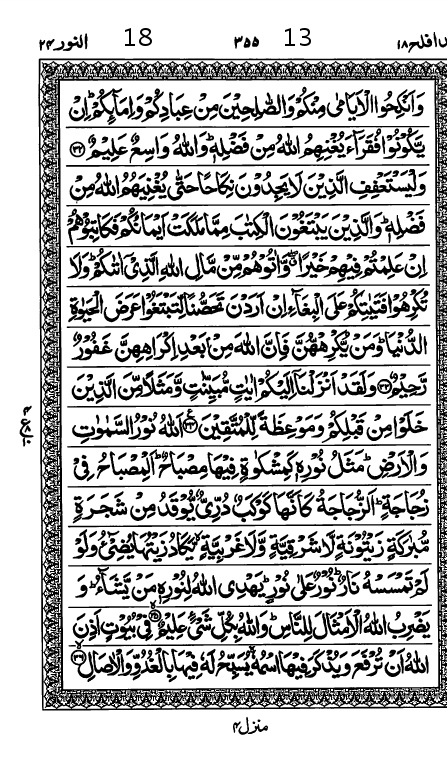 قد افلح ۱۸ 13 ۳۵۵ 18 النور ۲۴
وَاَنْكِحُوا الْاَيَامٰى مِنْكُمْ وَالصّٰلِحِيْنَ مِنْ عِبَادِكُمْ وَاِمَآئِكُمْ ؕ اِنْ
يَّكُوْنُوْا فُقَرَآءَ يُغْنِهِمُ اللّٰهُ مِنْ فَضْلِهٖ ؕ وَاللّٰهُ وَاسِعٌ عَلِيْمٌ ﴿۳۲﴾
وَلْيَسْتَعْفِفِ الَّذِيْنَ لَا يَجِدُوْنَ نِكَاحًا حَتّٰى يُغْنِيَهُمُ اللّٰهُ مِنْ
فَضْلِهٖ ؕ وَالَّذِيْنَ يَبْتَغُوْنَ الْكِتٰبَ مِمَّا مَلَكَتْ اَيْمَانُكُمْ فَكَاتِبُوْهُمْ
اِنْ عَلِمْتُمْ فِيْهِمْ خَيْرًا ۖۗ وَّاٰتُوْهُمْ مِّنْ مَّالِ اللّٰهِ الَّذِيْۤ اٰتٰىكُمْ ؕ وَلَا
تُكْرِهُوْا فَتَيٰتِكُمْ عَلَى الْبِغَآءِ اِنْ اَرَدْنَ تَحَصُّنًا لِّتَبْتَغُوْا عَرَضَ الْحَيٰوةِ
الدُّنْيَا ؕ وَمَنْ يُّكْرِهْهُّنَّ فَاِنَّ اللّٰهَ مِنْۢ بَعْدِ اِكْرَاهِهِنَّ غَفُوْرٌ
رَّحِيْمٌ ﴿۳۳﴾ وَلَقَدْ اَنْزَلْنَاۤ اِلَيْكُمْ اٰيٰتٍ مُّبَيِّنٰتٍ وَّمَثَلًا مِّنَ الَّذِيْنَ
خَلَوْا مِنْ قَبْلِكُمْ وَمَوْعِظَةً لِّلْمُتَّقِيْنَ ﴿۳۴﴾ اَللّٰهُ نُوْرُ السَّمٰوٰتِ
وَالْاَرْضِ ؕ مَثَلُ نُوْرِهٖ كَمِشْكٰوةٍ فِيْهَا مِصْبَاحٌ ؕ اَلْمِصْبَاحُ فِيْ
زُجَاجَةٍ ؕ اَلزُّجَاجَةُ كَاَنَّهَا كَوْكَبٌ دُرِّيٌّ يُّوْقَدُ مِنْ شَجَرَةٍ
مُّبٰرَكَةٍ زَيْتُوْنَةٍ لَّا شَرْقِيَّةٍ وَّلَا غَرْبِيَّةٍ ۙ يَّكَادُ زَيْتُهَا يُضِيْٓءُ وَلَوْ
لَمْ تَمْسَسْهُ نَارٌ ؕ نُوْرٌ عَلٰى نُوْرٍ ؕ يَهْدِى اللّٰهُ لِنُوْرِهٖ مَنْ يَّشَآءُ ؕ وَ
يَضْرِبُ اللّٰهُ الْاَمْثَالَ لِلنَّاسِ ؕ وَاللّٰهُ بِكُلِّ شَيْءٍ عَلِيْمٌ ﴿۳۵﴾ فِيْ بُيُوْتٍ اَذِنَ
اللّٰهُ اَنْ تُرْفَعَ وَيُذْكَرَ فِيْهَا اسْمُهٗ ۙ يُسَبِّحُ لَهٗ فِيْهَا بِالْغُدُوِّ وَالْاٰصَالِ ﴿۳۶﴾
منزل ۴